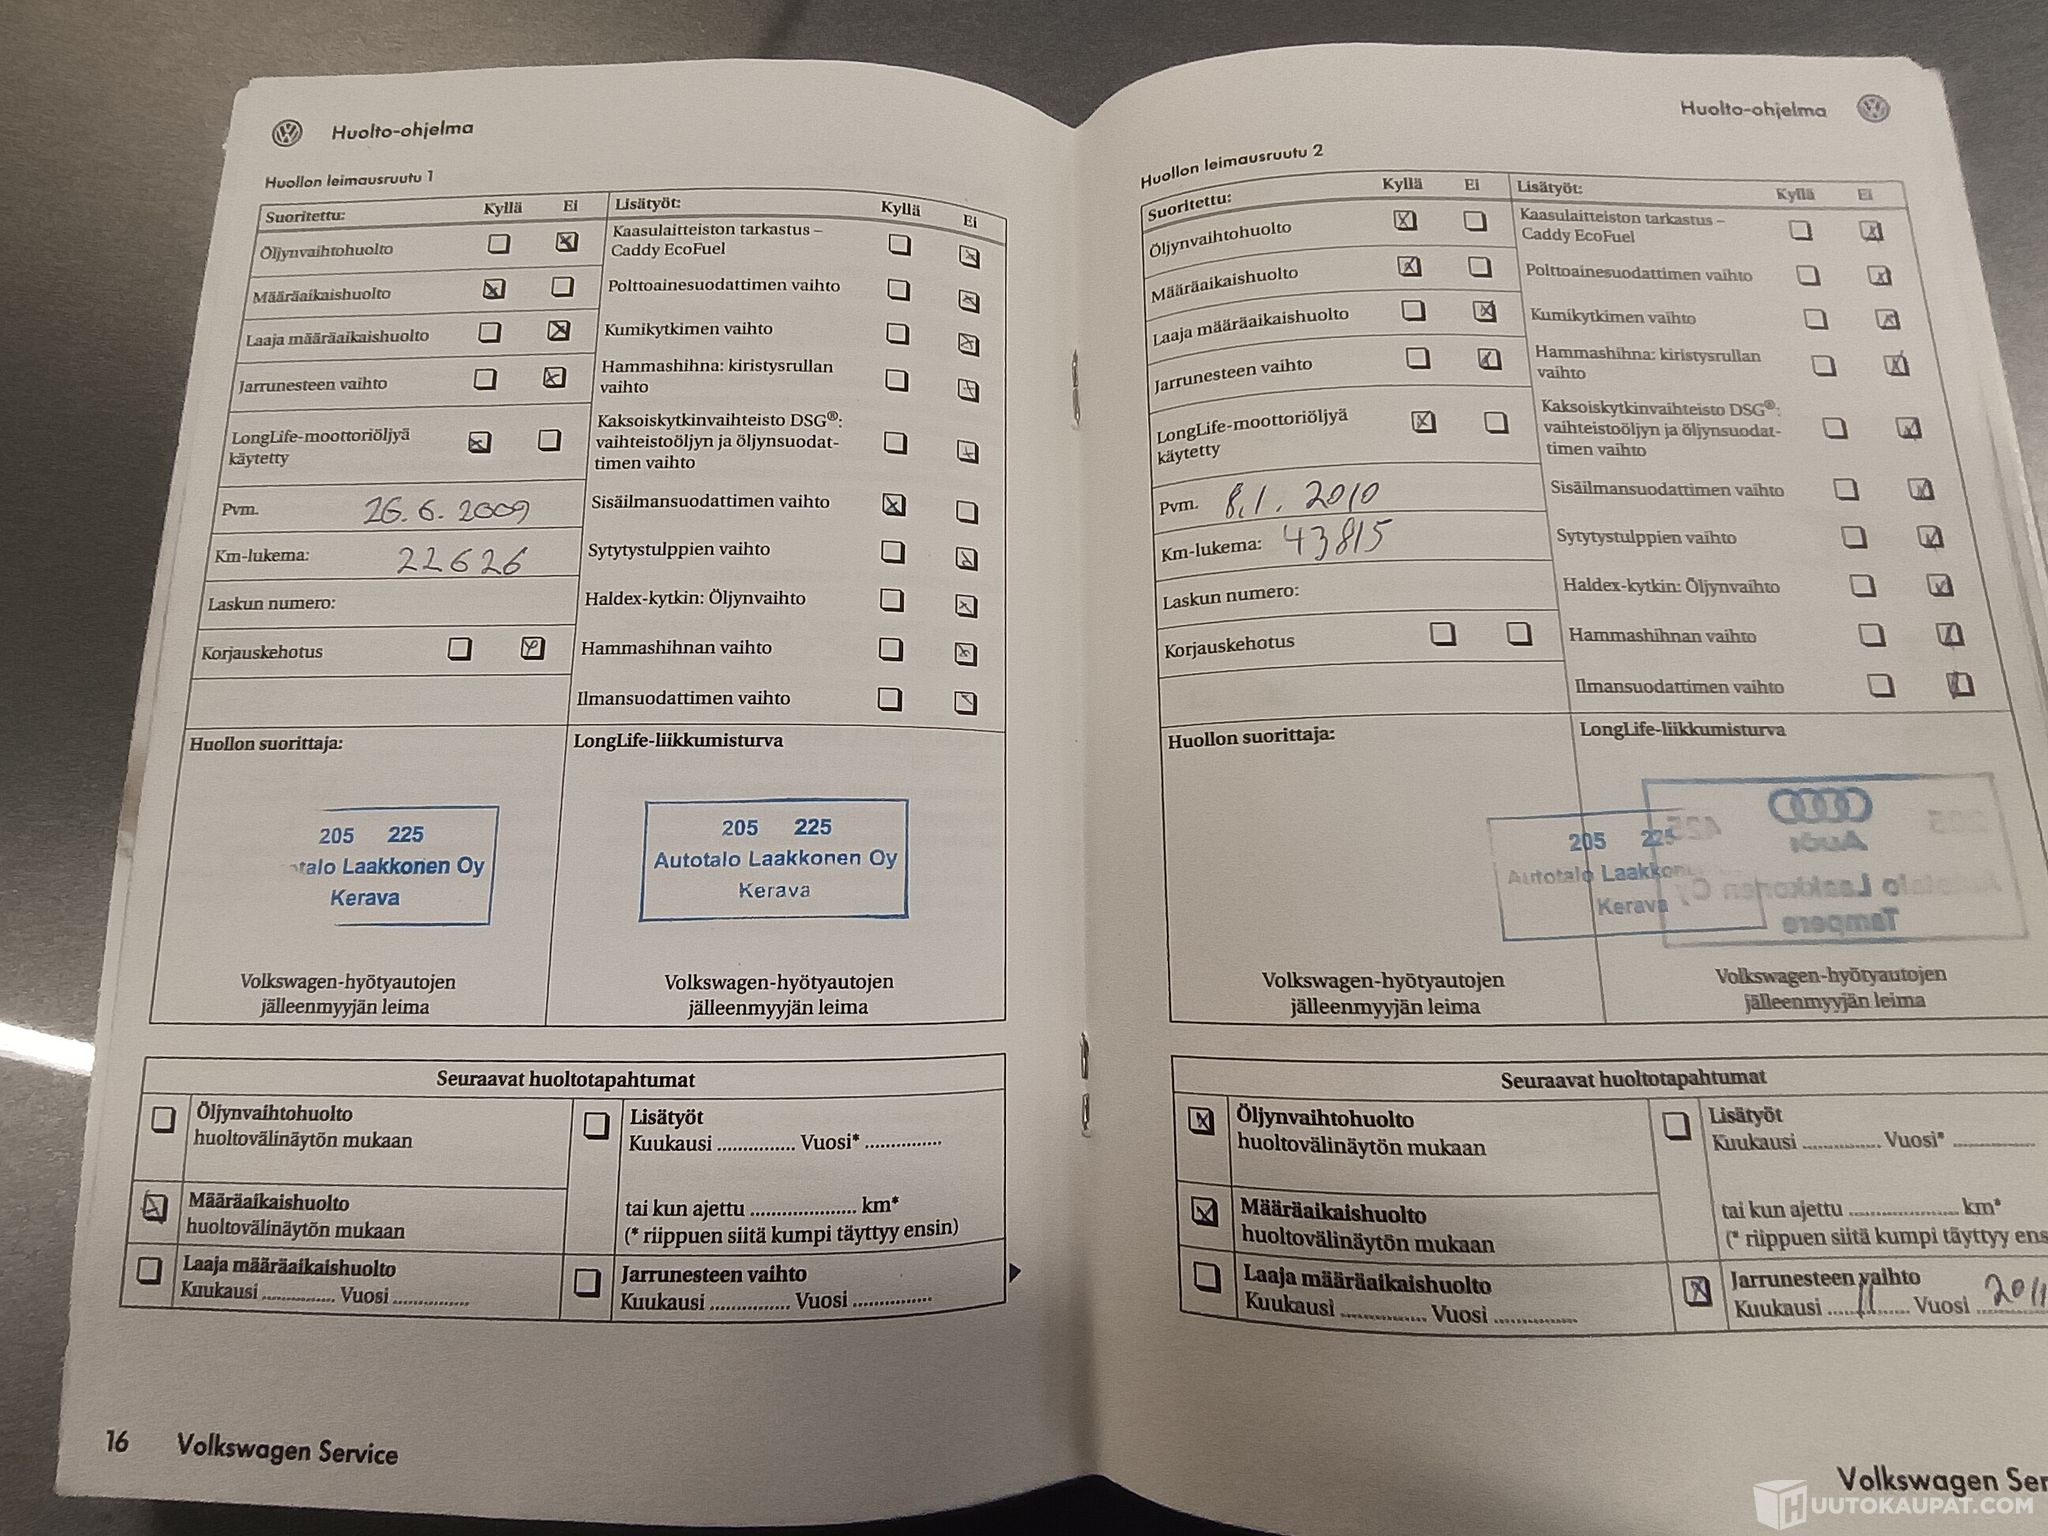 Huolto-ohjelma
Huollon leimausruutu 1
Suoritettu: Kyllä Ei
Öljynvaihtohuolto
Määräaikaishuolto
Laaja määräaikaishuolto
Jarrunesteen vaihto
LongLife-moottoriöljyä
käytetty
Pvm. 26.6.2009
Km-lukema: 22626
Laskun numero:
Korjauskehotus
Lisätyöt: Kyllä Ei
Kaasulaitteiston tarkastus –
Caddy EcoFuel
Polttoainesuodattimen vaihto
Kumikytkimen vaihto
Hammashihna: kiristysrullan
vaihto
Kaksoiskytkinvaihteisto DSG®:
vaihteistoöljyn ja öljynsuodat-
timen vaihto
Sisäilmansuodattimen vaihto
Sytytystulppien vaihto
Haldex-kytkin: Öljynvaihto
Hammashihnan vaihto
Ilmansuodattimen vaihto
Huollon suorittaja:
205 225
talo Laakkonen Oy
Kerava
Volkswagen-hyötyautojen
jälleenmyyjän leima
LongLife-liikkumisturva
205 225
Autotalo Laakkonen Oy
Kerava
Volkswagen-hyötyautojen
jälleenmyyjän leima
Seuraavat huoltotapahtumat
Öljynvaihtohuolto
huoltovälinäytön mukaan
Määräaikaishuolto
huoltovälinäytön mukaan
Laaja määräaikaishuolto
Kuukausi .............. Vuosi ..............
Lisätyöt
Kuukausi .............. Vuosi* ..............
tai kun ajettu .................... km*
(* riippuen siitä kumpi täyttyy ensin)
Jarrunesteen vaihto
Kuukausi .............. Vuosi ..............
16 Volkswagen Service
Huolto-ohjelma
Huollon leimausruutu 2
Suoritettu: Kyllä Ei
Öljynvaihtohuolto
Määräaikaishuolto
Laaja määräaikaishuolto
Jarrunesteen vaihto
LongLife-moottoriöljyä
käytetty
Pvm. 8.1.2010
Km-lukema: 43815
Laskun numero:
Korjauskehotus
Lisätyöt: Kyllä Ei
Kaasulaitteiston tarkastus –
Caddy EcoFuel
Polttoainesuodattimen vaihto
Kumikytkimen vaihto
Hammashihna: kiristysrullan
vaihto
Kaksoiskytkinvaihteisto DSG®:
vaihteistoöljyn ja öljynsuodat-
timen vaihto
Sisäilmansuodattimen vaihto
Sytytystulppien vaihto
Haldex-kytkin: Öljynvaihto
Hammashihnan vaihto
Ilmansuodattimen vaihto
Huollon suorittaja:
205 225
Autotalo Laakkon
Kerava
Volkswagen-hyötyautojen
jälleenmyyjän leima
LongLife-liikkumisturva
Audi
Laakkonen Oy
Tampere
Volkswagen-hyötyautojen
jälleenmyyjän leima
Seuraavat huoltotapahtumat
Öljynvaihtohuolto
huoltovälinäytön mukaan
Määräaikaishuolto
huoltovälinäytön mukaan
Laaja määräaikaishuolto
Kuukausi .............. Vuosi ..............
Lisätyöt
Kuukausi .............. Vuosi* ..............
tai kun ajettu .................... km*
(* riippuen siitä kumpi täyttyy ens
Jarrunesteen vaihto
Kuukausi 11 Vuosi 2011
Volkswagen Ser
HUUTOKAUPAT.COM